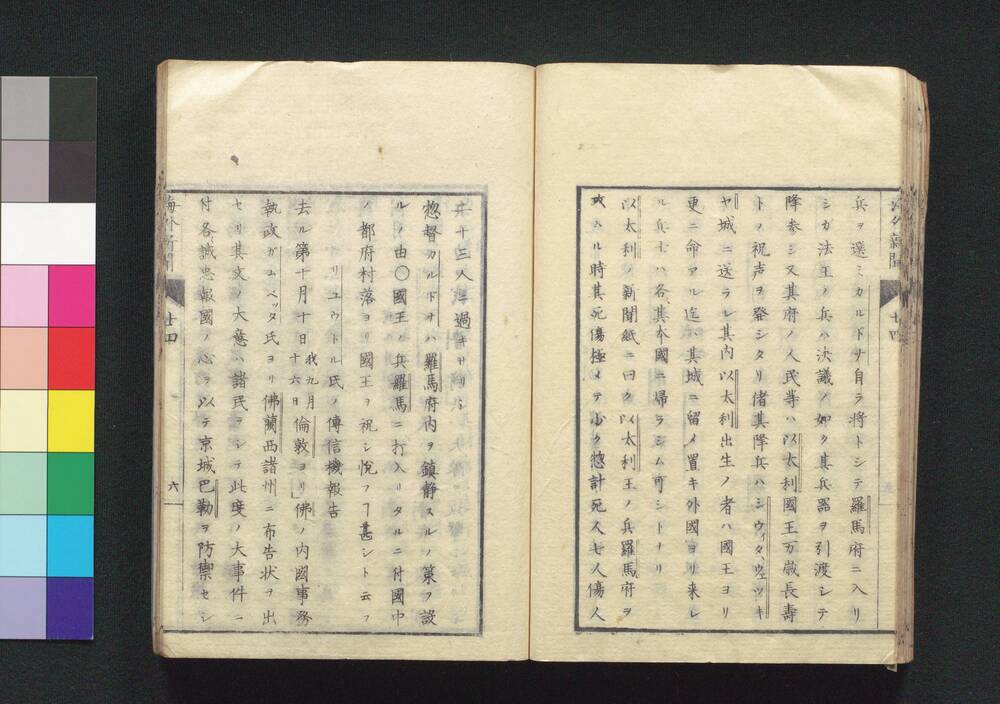 兵ヲ選ミカルドナ自ラ将トシテ羅馬府ニ入リ
シガ法王ノ兵ハ決議ノ如ク其兵器ヲ引渡シテ
降参シ又其府ノ人民等ハ以太利國王万歳長壽
トヲ祝声ヲ發シタリ偖其降兵ハシウィタ、ウェツキ
ヤ城ニ送ラレ其内以太利出生ノ者ハ國王ヨリ
更ニ命アル迄ハ其城ニ留メ置キ外國ヨリ来レ
ル兵士ハ各其本國ニ帰ラシム可シトナリ
以太利ノ新聞紙ニ曰ク以太利王ノ兵羅馬府ヲ
攻ハル時其死傷極メテ少ク惣計死人七人傷人
廿十三人ニ過キサリシ
惣督カルドナハ羅馬府内ヲ鎮静スルノ策ヲ設
ルノ由〇國王ノ兵羅馬ニ打入リタルニ付國中
ノ都府村落ヨリ國王ヲ祝シ悦フヿ甚シト云フ
リユウトル氏ノ傳信機報告
去ル第十月十日我九月十六日倫敦ヨリ」佛ノ内國事務
執政ガムベッタ氏ヨリ佛蘭西諸州ニ布告状ヲ出
セリ其文ノ大意ハ諸民ヲシテ此度ノ大事件ニ
付各誠忠報國ノ心ヲ以テ京城巴勒ヲ防禦セシ
海外新聞
廿四
六